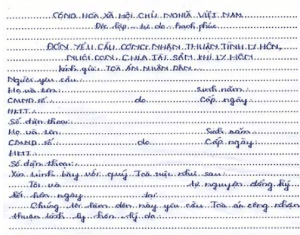 CỘNG HÒA XÃ HỘI CHỦ NGHĨA VIỆT NAM
Độc lập - tự do - hạnh phúc
ĐƠN YÊU CẦU CÔNG NHẬN THUẬN TÌNH LY HÔN,
NUÔI CON, CHIA TÀI SẢN KHI LY HÔN
Kính gửi: TOÀ ÁN NHÂN DÂN
Người yêu cầu:
Họ và tên: sinh năm:
CMND số: do Cấp ngày:
HKTT:
Số điện thoại:
Họ và tên: Sinh năm:
CMND số: do Cấp ngày:
HKTT:
Số điện thoại:
Xin trình bày với quý Toà sự việc như sau:
Tôi và tự nguyện đăng ký
kết hôn ngày tại
Chúng tôi làm đơn này yêu cầu Toà án công nhận
thuận tình ly hôn, lý do